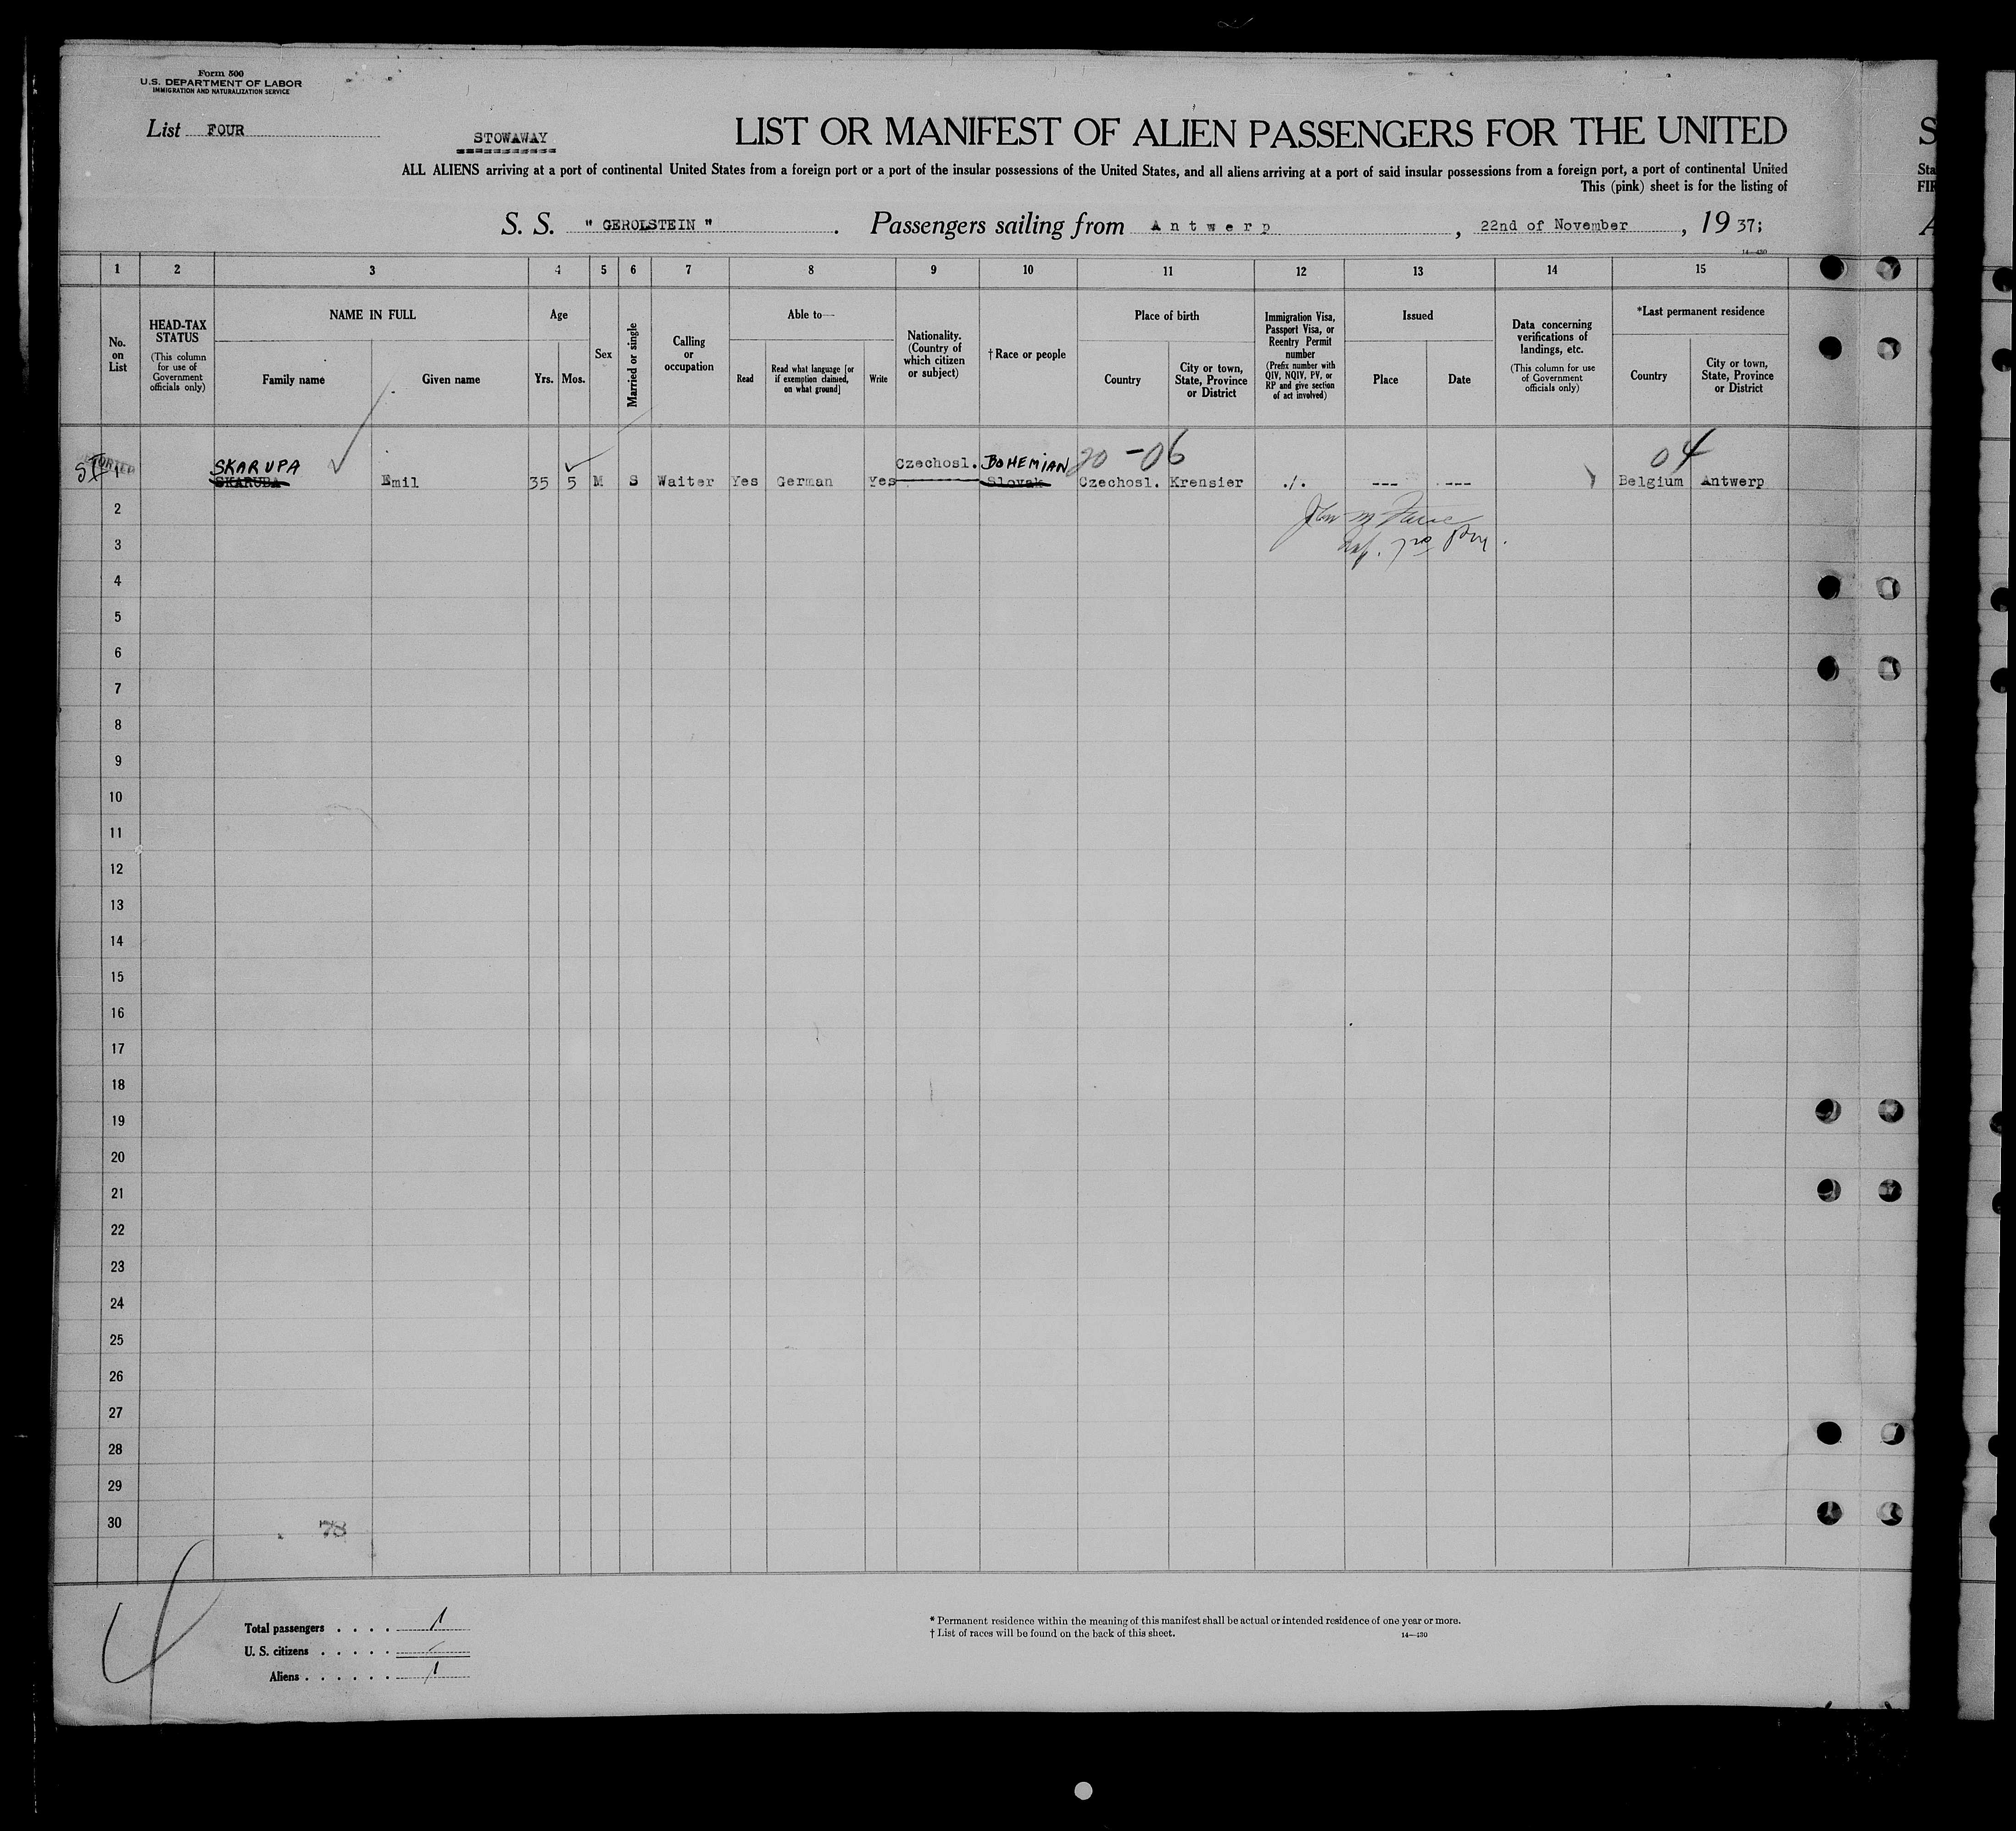 Form 500
U.S. DEPARTMENT OF LABOR
IMMIGRATION AND NATURALIZATION SERVICE
List FOUR
STOWAWAY
LIST OR MANIFEST OF ALIEN PASSENGERS FOR THE UNITED
S
ALL ALIENS arriving at a port of continental United States from a foreign port or a port of the insular possessions of the United States, and all aliens arriving at a port of said insular possessions from a foreign port, a port of continental United
Sta
This (pink) sheet is for the listing of
FIR
S. S. " GEROLSTEIN ". Passengers sailing from Antwerp, 22nd of November, 1937;
A
1 2 3 4 5 6 7 8 9 10 11 12 13 14 15
No. on List
HEAD-TAX STATUS
(This column for use of Government officials only)
NAME IN FULL
Family name
Given name
Age
Yrs.
Mos.
Sex
Married or single
Calling or occupation
Able to—
Read
Read what language [or if exemption claimed, on what ground]
Write
Nationality. (Country of which citizen or subject)
† Race or people
Place of birth
Country
City or town, State, Province or District
Immigration Visa, Passport Visa, or Reentry Permit number
(Prefix number with QIV, NQIV, PV, or RP and give section of act involved)
Issued
Place
Date
Data concerning verifications of landings, etc.
(This column for use of Government officials only)
*Last permanent residence
Country
City or town, State, Province or District
SKARUPA Czechosl. BOHEMIAN 20 -06 04
1 SKARUBA Emil 35 5 M S Waiter Yes German Yes Slovak Czechosl. Krensier ./. --- --- Belgium Antwerp
2
3
4
5
6
7
8
9
10
11
12
13
14
15
16
17
18
19
20
21
22
23
24
25
26
27
28
29
30
78
4
Total passengers . . . . 1
U. S. citizens . . . . .
Aliens . . . . . . 1
* Permanent residence within the meaning of this manifest shall be actual or intended residence of one year or more.
† List of races will be found on the back of this sheet.
14—430